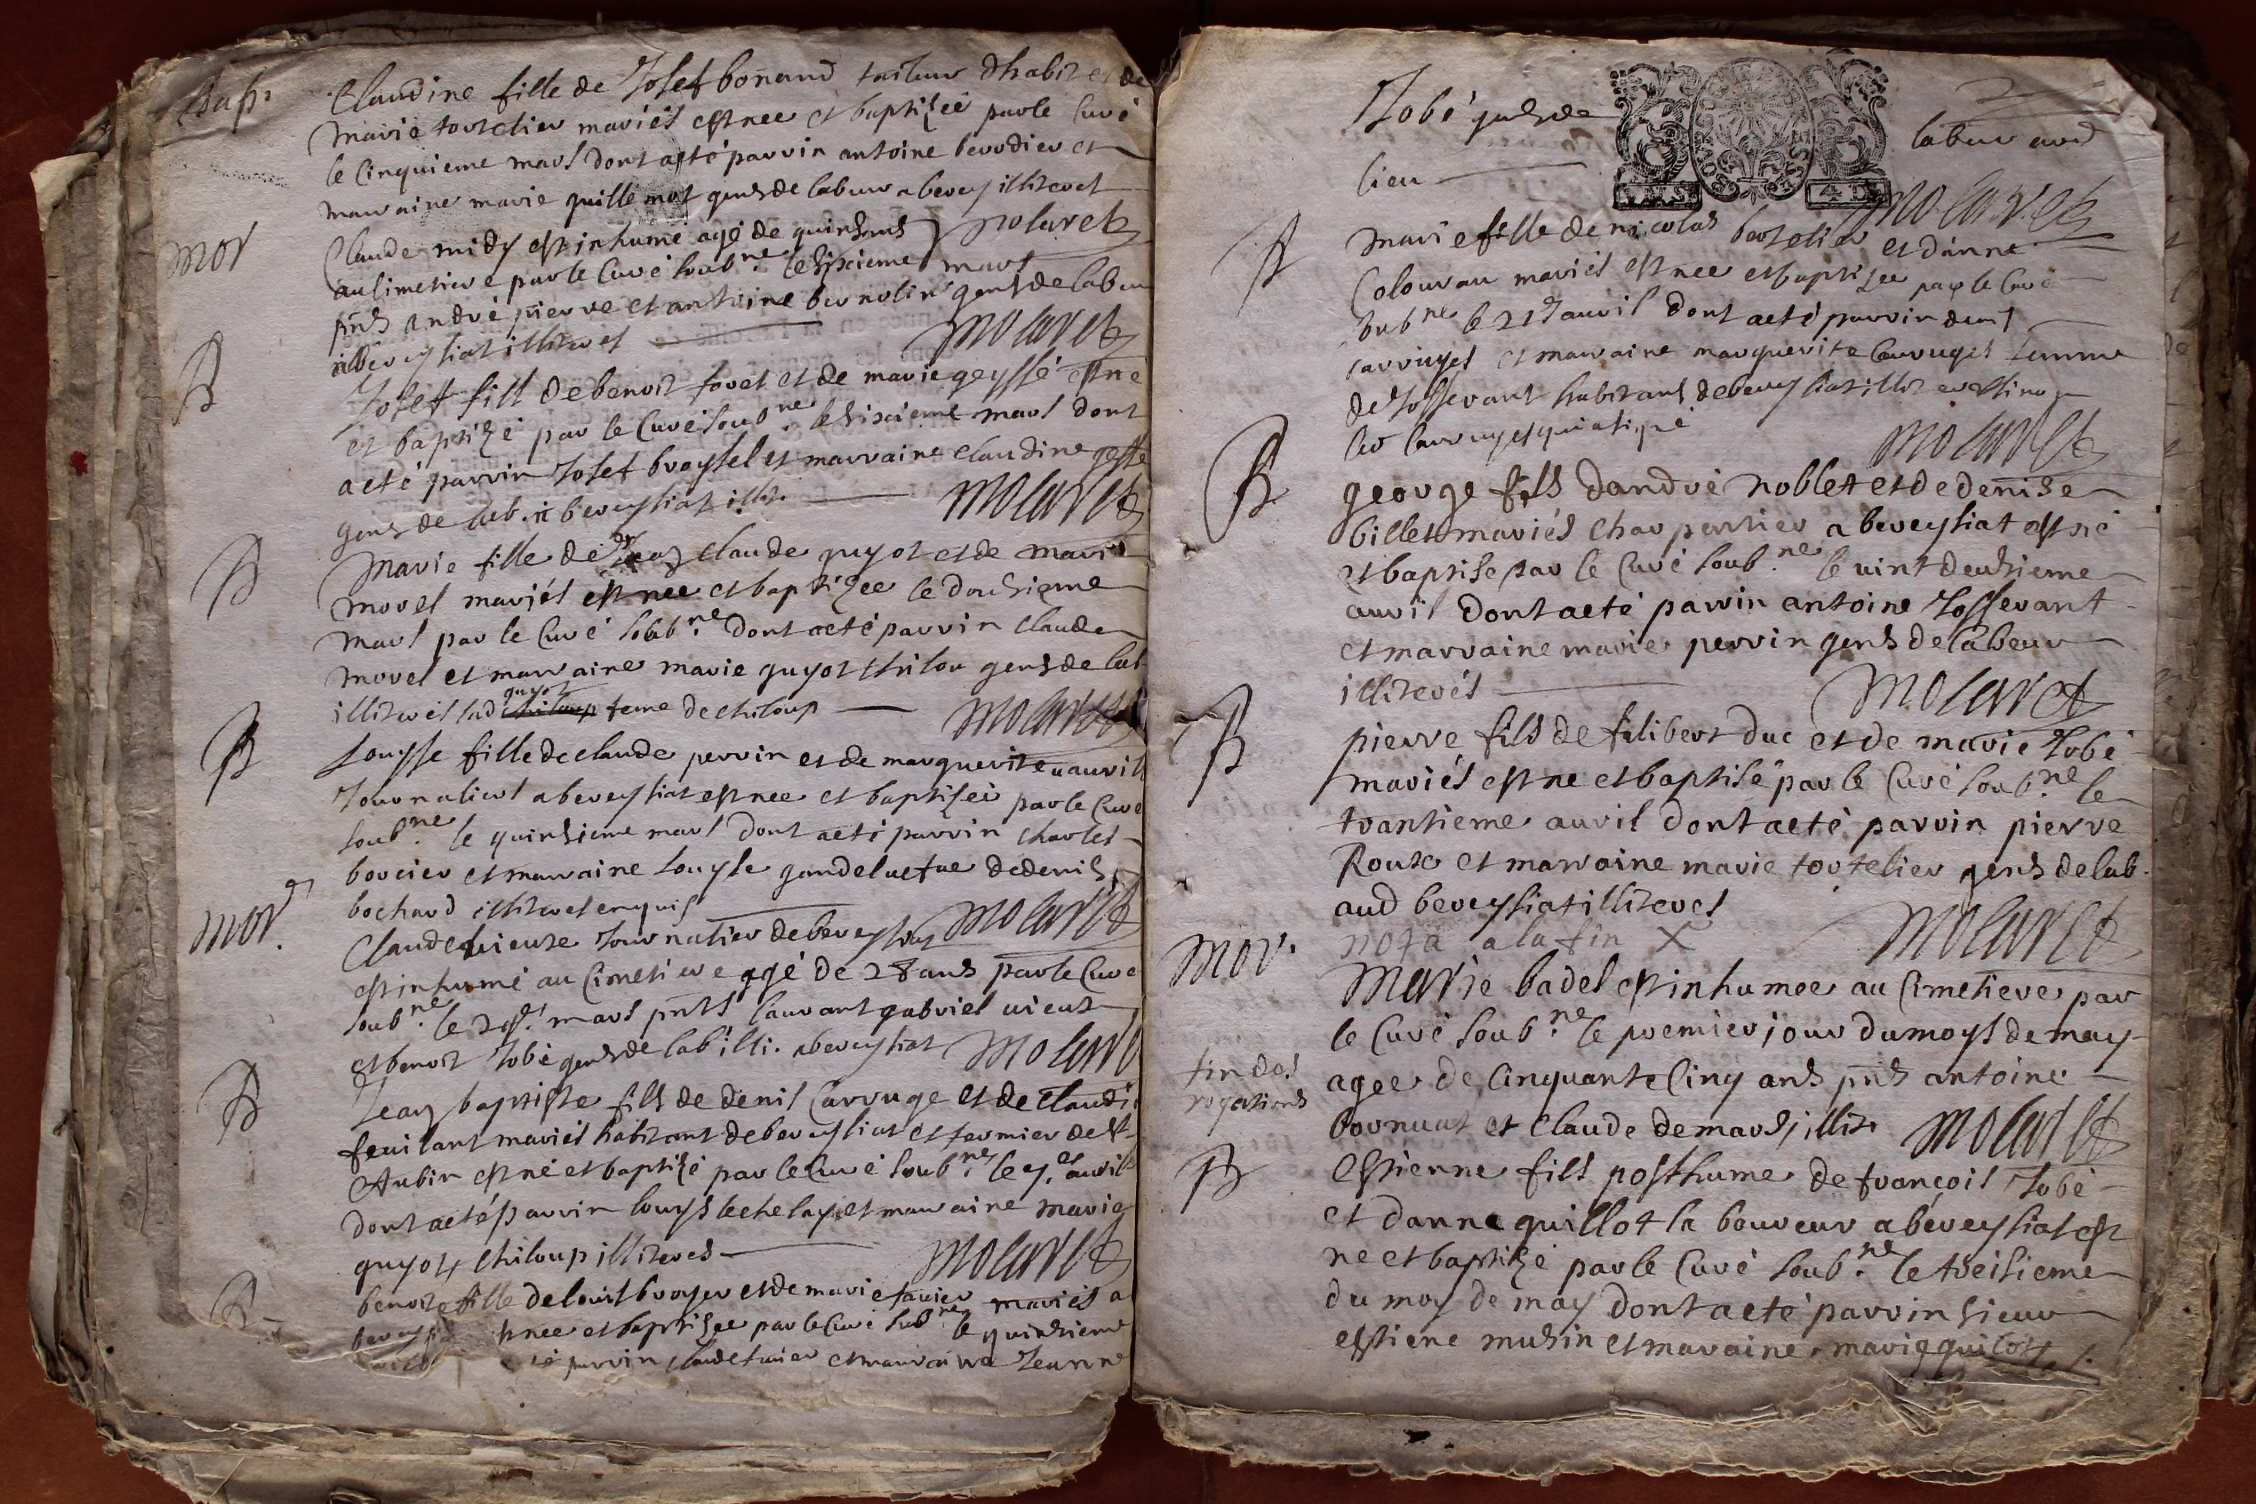 Bap. Claudine fille de Josef bonand tailleur dhabit et de
marie tortelier mariés est nee et baptizée par le Curé
le Cinquieme mars dont acté parrin antoine berodier et
marraine marie guillemot gens de labeur a berey illiteres
Molaret
mor Claude midy est inhumé agé de quinze ans
au Cimetiere par le Curé soub.ne le sixieme mars
pnts andré pierre et antoine bernolin gens de labeur
illiteres Molaret
B Josef fils de benoit foret et de marie geyssé est ne
et baptizé par le Curé soub.ne le sixieme mars dont
acté parrin Josef broysel et marraine Claudine geysse
gens de lab. a bereysiat illit. Molaret
B Marie fille de Claude guyot et de marie
morel mariés est nee et baptizee le douzieme
mars par le Curé soub.ne dont acté parrin Claude
morel et marraine marie guyot chilou gens de lab
guyot
illiteres lad chiloup feme de chiloup Molaret
B Louysse fille de claude perrin et de marguerite
Journaliers a bereysiat est nee et baptizée par le Curé
soub.ne le quinzieme mars dont acté parrin charles
borcier et marraine louyse de denis
bochard illiteres enquis Molaret
mor. Claude vieux Journalier de bereysiat
est inhumé au Cimetiere agé de 28 ans par le Curé
soub.ne le mars pnts laurant gabriel vieux
et benoit Jobé gens de lab illi. a bereysiat Molaret
B Jean baptiste fils de denis Carruge et de Claudi
feuilant mariés habitant de bereysiat et fermier de St
Aubin est né et baptizé par le Curé soub.ne le auril
dont acté parrin louys lechelay et marraine marie
guyot chiloup illiteres Molaret
B benoite fille de louis broyer et de marie mariés a
nee et baptizee par le Curé sub.ne le quinzieme
parrin et marraine Jeanne
Jobé gens de labeur aud
lieu
Molaret
B Marie fille de nicolas bortelier et danne
Colourau mariés est nee et baptizee par le Curé
sub.ne le 21e auril dont acté parrin denis
Carruges et marraine marguerite Carruges femme
de Josserant habitant de bereysiat illiteres sinon
led Carruges qui a signé
Molaret
B george fils dandré noblet et de denise
billet mariés charpentier a bereysiat est né
et baptisé par le Curé soub.ne le vint deuzieme
auril dont acté parrin antoine Josserant
et marraine marie perrin gens de labeur
illiterés Molaret
B pierre fils de filibert duc et de marie Jobé
mariés est ne et baptisé par le Curé soub.ne le
trantieme auril dont acté parrin pierre
Roux et marraine marie tortelier gens de lab.
aud bereysiat illiteres
Molaret
nota a la fin X
mor. Marie badel est inhumee au Cimetiere par
le Curé soub.ne le premier jour du moys de may
fin des rogations
agee de Cinquante Cinq ans pnts antoine
bornuat et Claude demars illit. Molaret
B Estienne fils posthume de françois Jobé
et danne guillot laboureur a béreysiat est
né et baptizé par le Curé soub.ne le treisieme
du moy de may dont acté parrin sieur
estiene muzin et maraine marie guilot